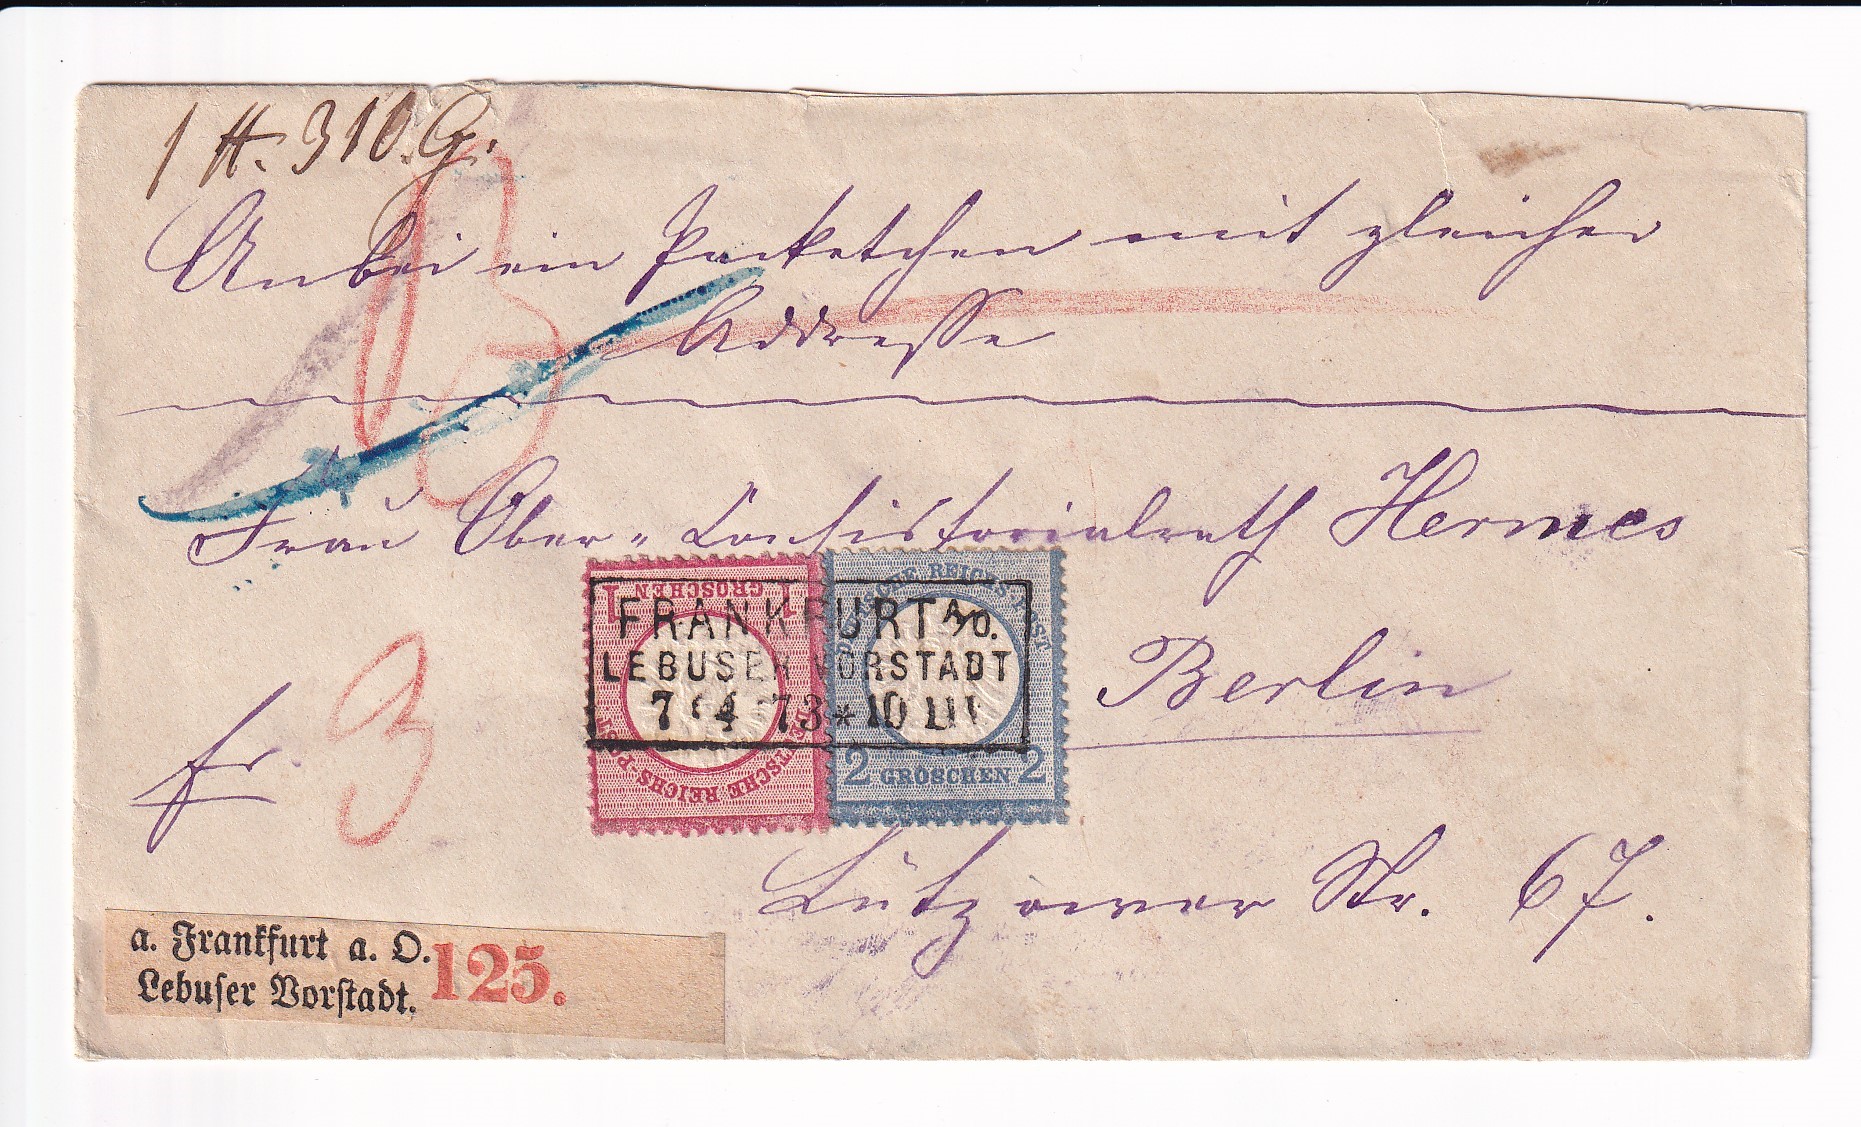 1 ℔. 310. G.
Anbei ein Packetchen mit gleicher
Addresse
Frau Ober-Consistorialrath Hermes
1 GROSCHEN 1
DEUTSCHE REICHS-POST
DEUTSCHE REICHS-POST
2 GROSCHEN 2
FRANKFURT A/O.
LEBUSER VORSTADT
7 4 73 * 10
Berlin
fr.
3
Lützower Str. 67.
a. Frankfurt a. O.
Lebuser Vorstadt.
125.